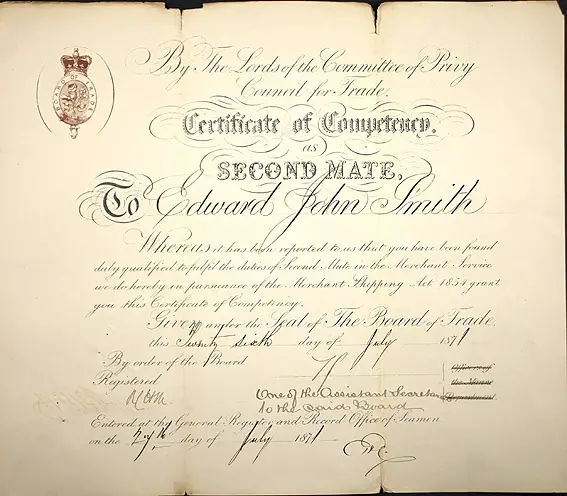 BOARD OF TRADE
By The Lords of the Committee of Privy
Council for Trade.
Certificate of Competency.
as
SECOND MATE,
To Edward John Smith
Whereas it has been reported to us that you have been found
duly qualified to fulfil the duties of Second Mate in the Merchant Service
we do hereby in pursuance of the Merchant Shipping Act 1854 grant
you this Certificate of Competency.
Given under the Seal of The Board of Trade.
this Twenty sixth day of July 1871
By order of the Board
Registered
One of the Assistant Secretaries
to the said Board
Entered at the General Register and Record Office of Seamen
on the 27th day of July 1871